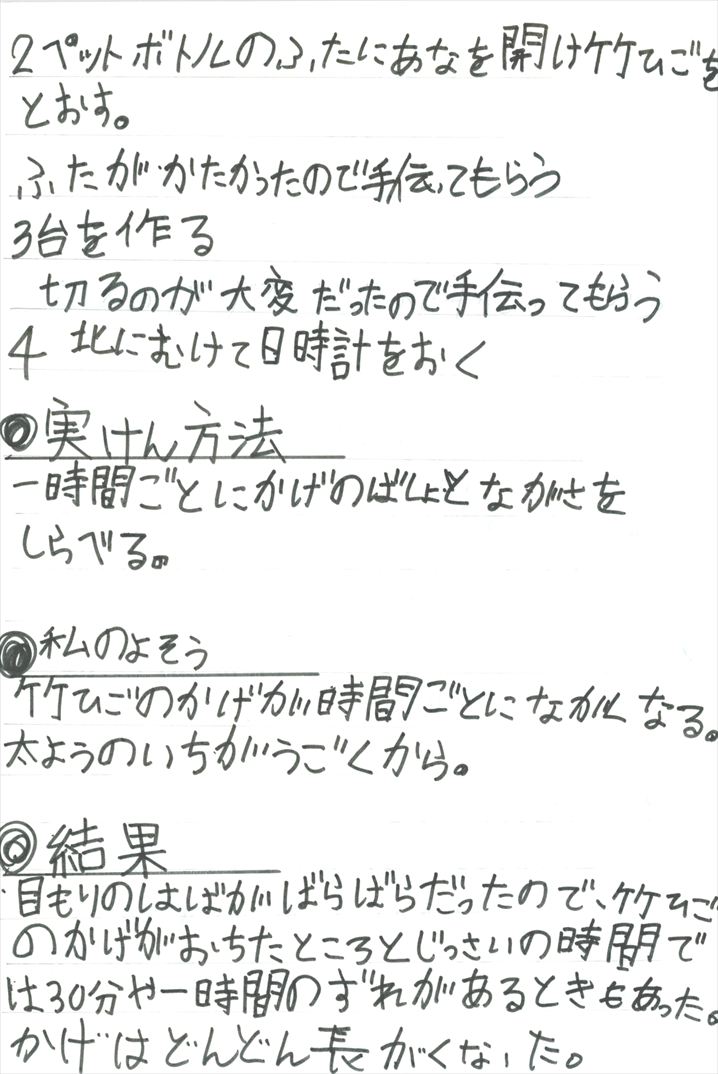 2ペットボトルのふたにあなを開け竹ひごを
とおす。
ふたがかたかったので手伝ってもらう
3台を作る
切るのが大変だったので手伝ってもらう
4 北にむけて日時計をおく
◎実けん方法
一時間ごとにかげのばしょとながさを
しらべる。
◎私のよそう
竹ひごのかげが時間ごとにながくなる。
太ようのいちがうごくから。
◎結果
目もりのはばがばらばらだったので、竹ひご
のかげがおちたところとじっさいの時間で
は30分や一時間のずれがあるときもあった。
かげはどんどん長がくなった。